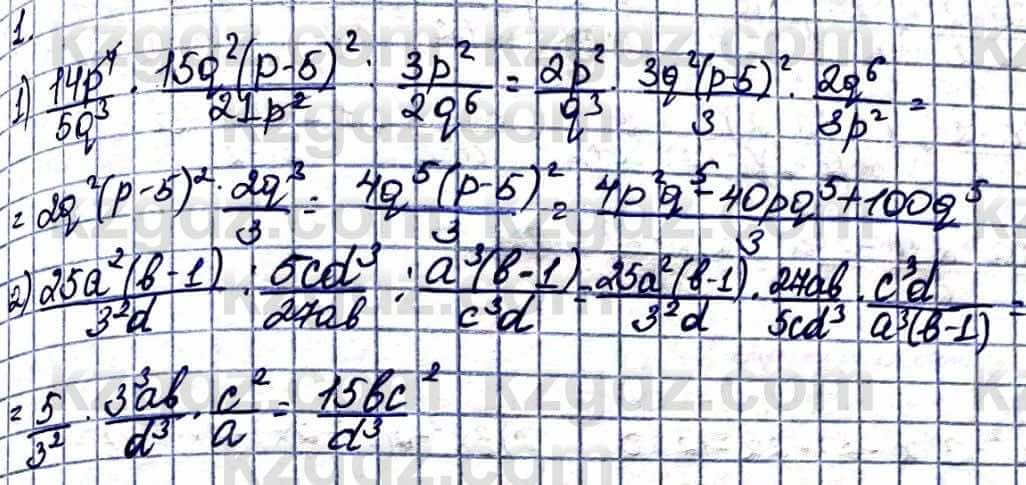 1.
1) 14p⁴/5q³ · 15q²(p-5)²/21p² : 3p²/2q⁶ = 2p²/q³ · 3q²(p-5)²/3 · 2q⁶/3p² =
= 2q²(p-5)² · 2q³/3 = 4q⁵(p-5)²/3 = 4p²q⁵-40pq⁵+100q⁵/3
2) 25a²(b-1)/3²d : 5cd³/27ab : a³(b-1)/c³d = 25a²(b-1)/3²d · 27ab/5cd³ · c³d/a³(b-1) =
= 5/3² · 3³ab/d³ · c²/a = 15bc²/d³
kzgdz.com